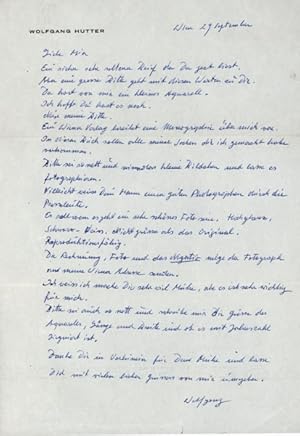 WOLFGANG HUTTER
Wien 29 September
Liebe Mia
Ein sicher sehr seltener Brief den Du gut liest.
Aber eine grosse Bitte geht mit diesen Worten an Dir.
Du hast von mir ein kleines Aquarell.
Ich hoffe Du hast es noch.
Also meine Bitte.
Ein Wiener Verlag bereitet eine Monographie über mich vor.
In diesem Buch sollen alle meine Sachen die ich gemacht habe
vorkommen.
Bitte sei so nett und nimm das kleine Bildchen und lasse es
fotographieren.
Vielleicht weiss Dein Mann einen guten Photographen durch die
Presseleute.
Es soll ein sehr schönes Foto sein. Hochglanz,
Schwarz-Weiss. Nicht grösser als das Original.
Reproduktionsfähig.
Die Rechnung, Foto und das Negativ möge der Fotograph
an meine Wiener Adresse senden.
Ich weiss ich mache Dir sehr viel Mühe, aber es ist sehr wichtig
für mich.
Bitte sei auch so nett und schreibe mir die Grösse des
Aquarelles, Länge und Breite und ob es mit Jahreszahl
signiert ist.
Danke Dir im Vorhinein für Deine Mühe und lasse
Dich mit vielen lieben Grüssen von mir umgeben.
Wolfgang